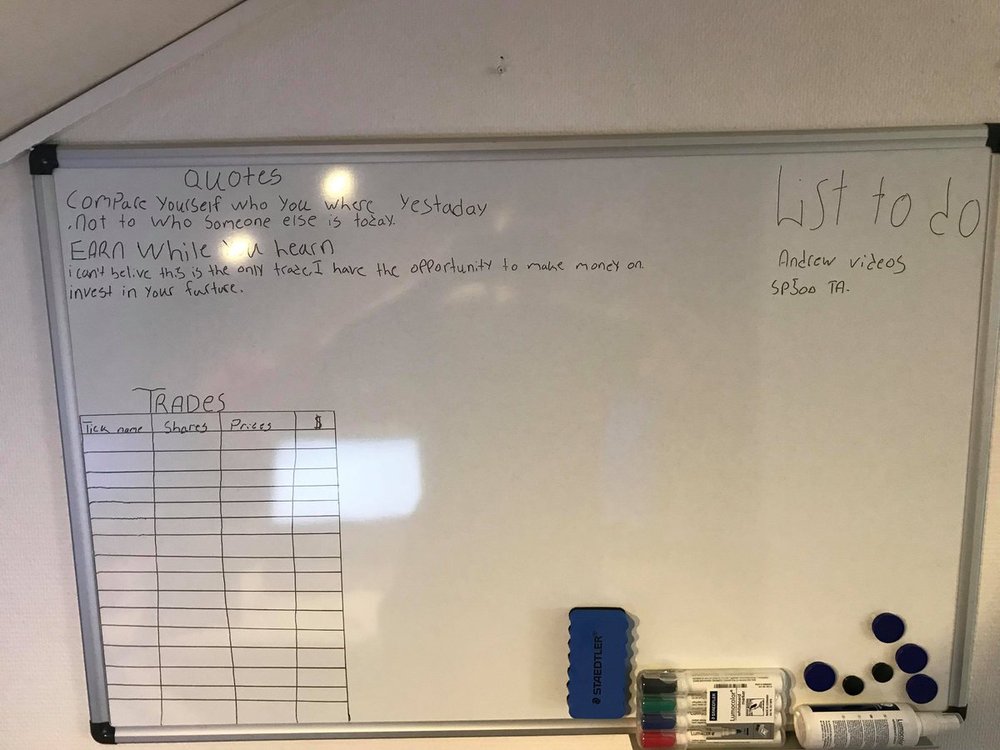 QUOTES
Compare Yourself who You where Yestaday
.Not to who Someone else is today.
EARN While You Learn
i can't belive this is the only trade I have the opportunity to make money on.
invest in your furture.
List to do
Andrew videos
SP500 TA.
TRADES
Tick name Shares Prices $
STAEDTLER
Lumocolor